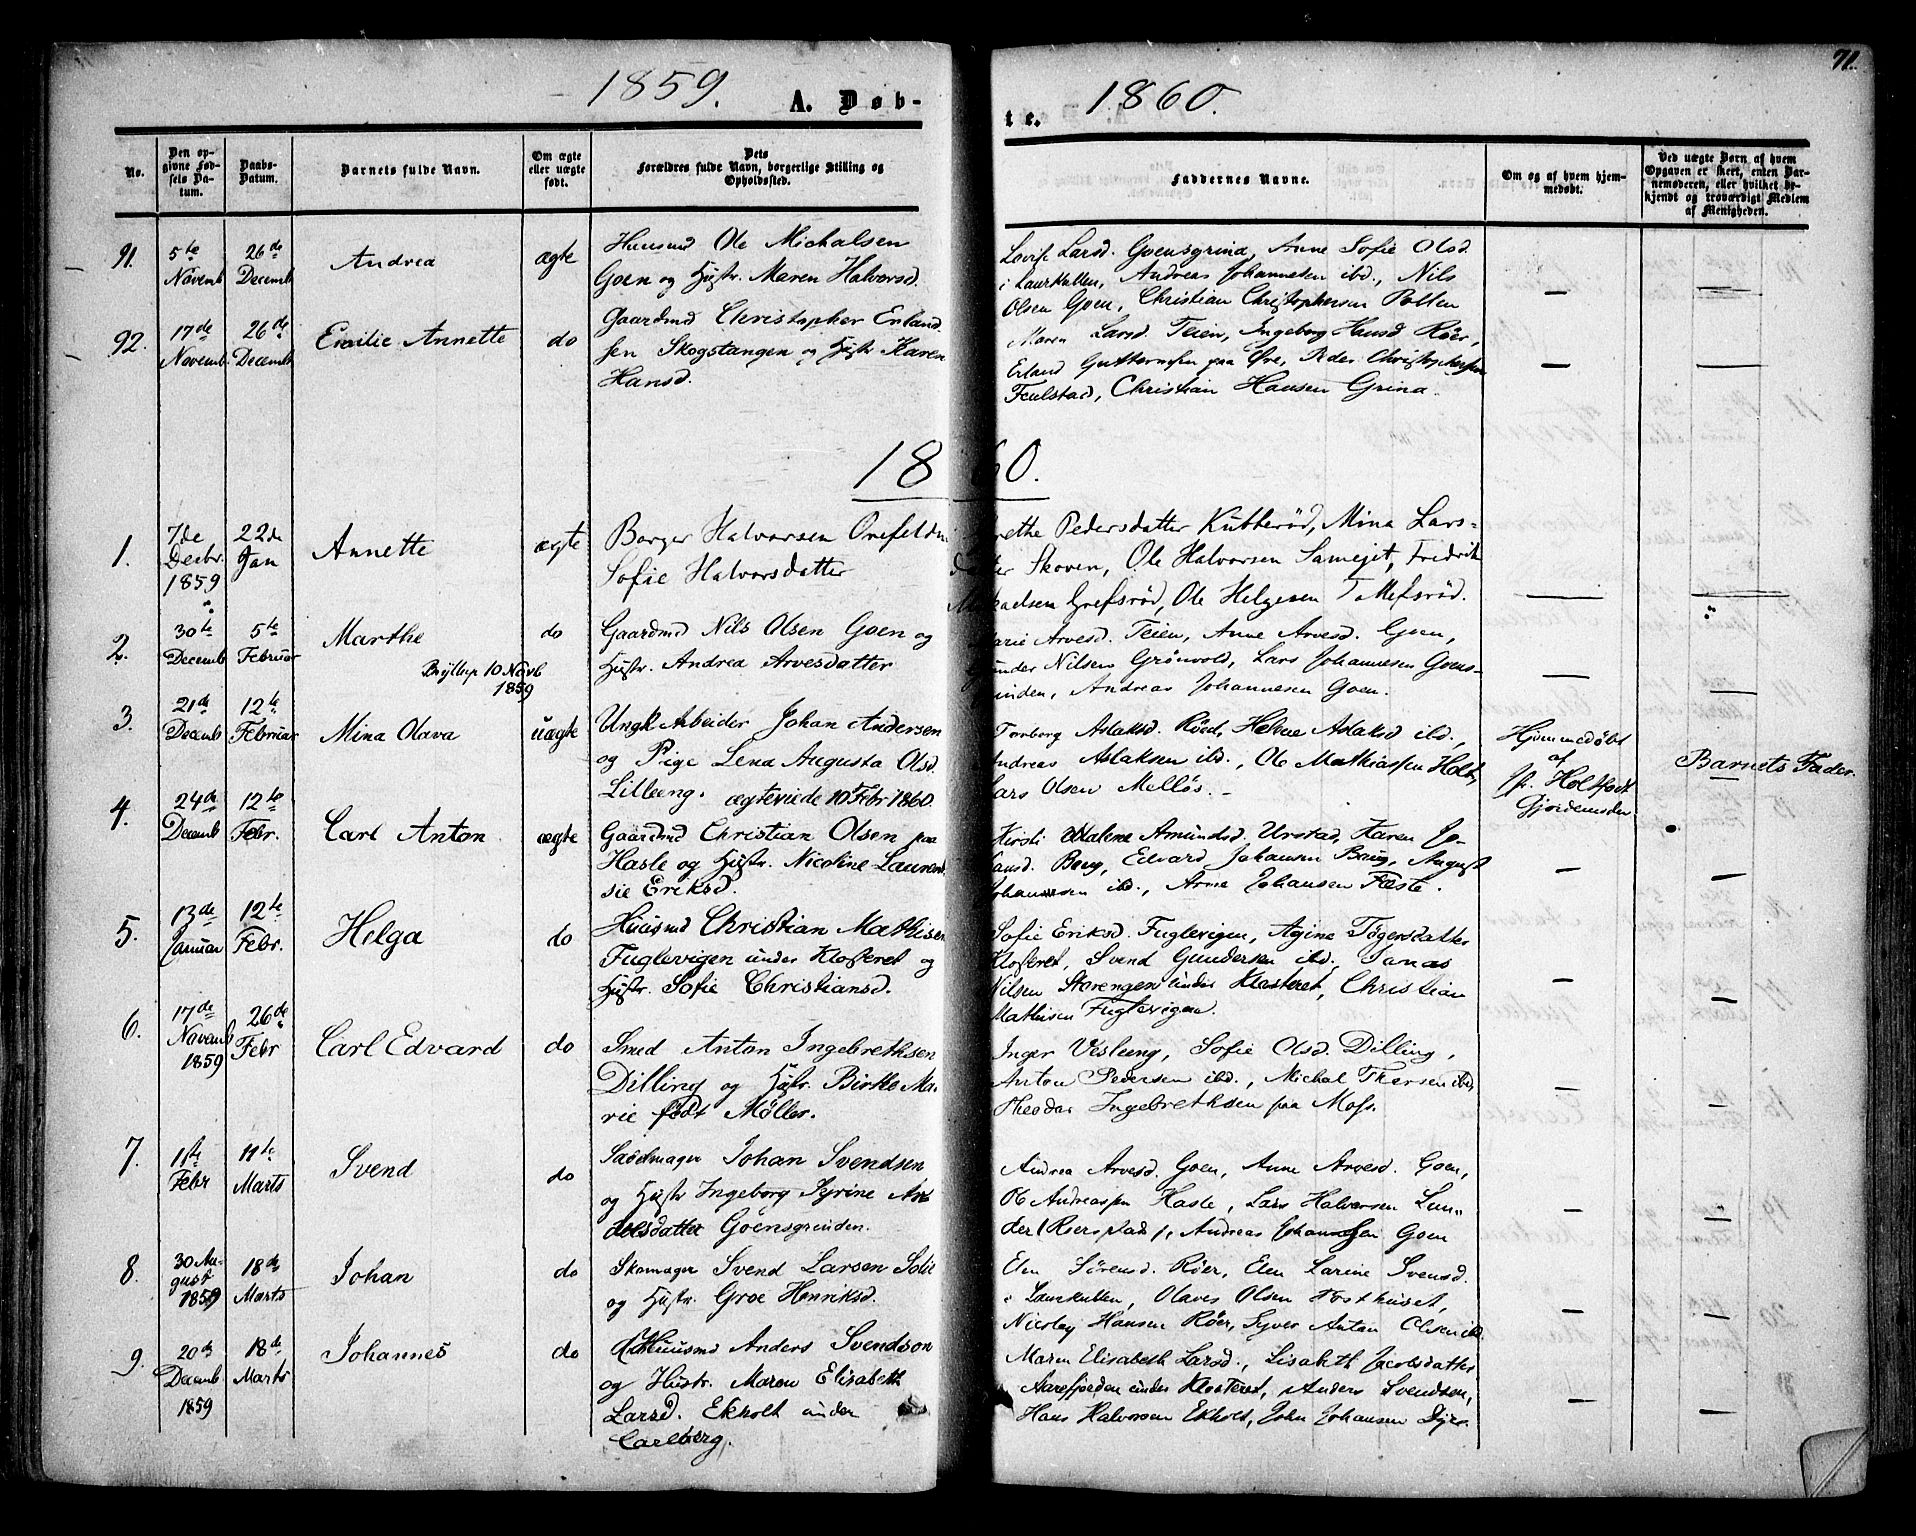 71.
1859.
A. Døb-
te.
1860.
No.
Den op-
givne Fød-
sels Da-
tum.
Daabs-
Datum.
Barnets fulde Navn.
Om ægte
eller uægte
født.
Dets
Forældres fulde Navn, borgerlige Stilling og
Opholdssted.
Faddernes Navne.
Om og af hvem hjem-
medøbt.
Ved uægte Børn, af hvem
Opgaven er skeet, enten Bar-
nemoderen, eller hvilket be-
kjendt og troværdigt Medlem
af Menigheden.
91. 5te Novemb 26de Decemb Andrea ægte
Huusmd Ole Michalsen
Goen og Hustr. Maren Halvorsd.
Lovise Larsd. Goensgrind, Anne Sofie Olsd
i Laurkullen, Andreas Johannesen ibd., Nils
Olsen Goen, Christian Christophersen Pollen
—
92. 17de Novemb. 26de Decemb Emilie Annette do
Gaardmd Christopher Erland
sen Skogstangen og Hustr Karen
Hansd.
Maren Larsd. Teien, Ingeborg Hansd Röer,
Erland Guttormsen paa Øre, Peder Christophersen
Feulstad, Christian Hansen Grina.
—
1860.
1. 7de Decbr. 1859 22de Jan Annette ægte
Borger Halvorsen Orefeldn
Sofie Halvorsdatter
rethe Pedersdatter Kubberød, Mina Lars-
datter Skoven, Ole Halvorsen Samejet, Fredrik
adsen Grefsrød, Ole Helgesen
—
2. 30te Decemb 5te Februar Marthe do
Bryllup 10 Novb
1859
Gaardmd Nils Olsen Goen og
Hustr. Andrea Arvesdatter
arie Arvesd. Teien, Anne Arvesd. Goen,
under Nilsen Grönvold, Lars Johannesen Goens-
inden, Andreas Johannesen Goen.
—
3. 21de Decemb 12te Februar Mina Olava uægte
Ungk Arbeider Johan Andersen
og Pige Lena Augusta Olsd.
Lilleeng. ægteviede 10 Febr 1860.
Torborg Aslaksd. Röed, Helene Aslaksd ibd.,
Andreas Aslaksen ibd., Ole Mathiassen Holt,
Lars Olsen Mellös.
Hjemmedøbt
af
Barnets Fader
4. 24de Decemb 12te Febr. Carl Anton ægte
Gaardmd Christian Olsen paa
Hasle og Hustr. Nicoline Lauren
sie Eriksd.
Kirsti Malene Amundsd. Urstad, Karen Jo
hansd. Borg, Edvard Johansen Borg, August
Johannsen ibd., Arne Johansen Fæste.
—
5. 13de Januar 12te Febr. Helga do
Huusmd Christian Mathisen
Fuglevigen under Klosteret og
Hustr. Sofie Christiansd.
Sofie Eriksd. Fuglevigen, Agine Tögersdatter
Klosteret, Svend Gundersen ibd., Jonas
Nilsen Storengen under Klosteret, Christian
Mathisen Fuglevigen.
—
6. 17de Novemb 1859 26de Febr Carl Edvard do
Smed Anton Ingebrethsen
Dilling og Hustr. Birthe Ma-
rie født Møller.
Inger Visleeng, Sofie Olsd. Dilling,
Anton Pedersen ibd., Michal Thorsen ibd,
Theodor Ingebrethsen paa Moss.
—
7. 11te Febr 11te Marts Svend do
Sadelmager Johan Svendsen
og Hustr Ingeborg Syrine An
dersdatter Goensgrinden.
Andrea Arvesd. Goen, Anne Arvesd. Goen,
Ole Andreassen Hasle, Lars Halvorsen Lun-
der (Rierstad), Andreas Johannesen Goen
—
8. 30 August 1859 18de Marts Johan do
Skomager Svend Larsen Solie
og Hustr. Groe Henriksd.
Elen Sörensd. Röer, Elen Larine Svensd.
i Laurkullen, Olaves Olsen Posthuset,
Nicolay Hansen Röer, Syver Anton Olsen ibd.
—
9. 20de Decemb 1859 18de Marts Johannes do
Huusmd Anders Svendsen
og Hustr. Maren Elisabeth
Larsd. Ekholt under
Carlberg.
Maren Elisabeth Larsd., Lisabeth Jacobsdatter
Aarefjorden under Klosteret, Anders Svendsen,
Hans Halvorsen Ekholt, John Johansen Dyre
—